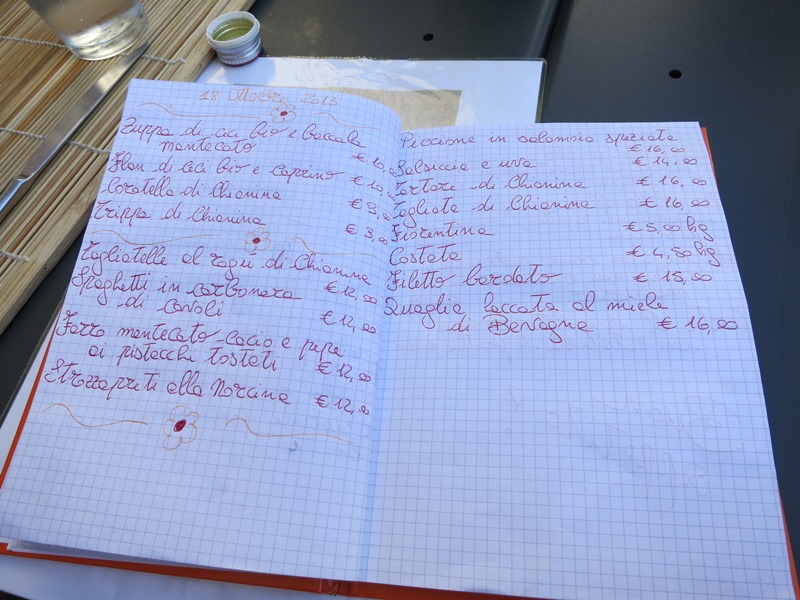 18 Ottobre 2013
Zuppa di ceci bio e baccala
mantecato € 10,
Flan di ceci bio e caprino € 10,
Coratella di Chianina € 9,00
Trippa di Chianina € 9,00
Tagliatelle al ragù di Chianina € 12,00
Spaghetti in carbonara
di cavoli € 12,00
Farro mantecato cacio e pepe
ai pistacchi tostati € 12,00
Strozzapreti alla Norcina € 12,00
Piccione in salamoia speziata € 16,00
Salsiccia e uva € 14,00
Tartare di Chianina € 16,00
Tagliata di Chianina € 16,00
Fiorentina € 5,00 hg
Costata € 4,50 hg
Filetto bardato € 18,00
Quaglia laccata al miele
di Bevagna € 16,00